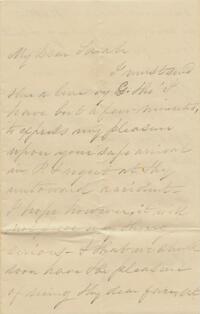 My Dear Sarah
I must send
thee a line by G. tho' I
have but a few minutes,
to express my pleasure
upon your safe arrival
and regret at thy
untoward accident.
I hope however, it will
not
serious - I that we
soon have the pleasure
of seeing thy dear face, at